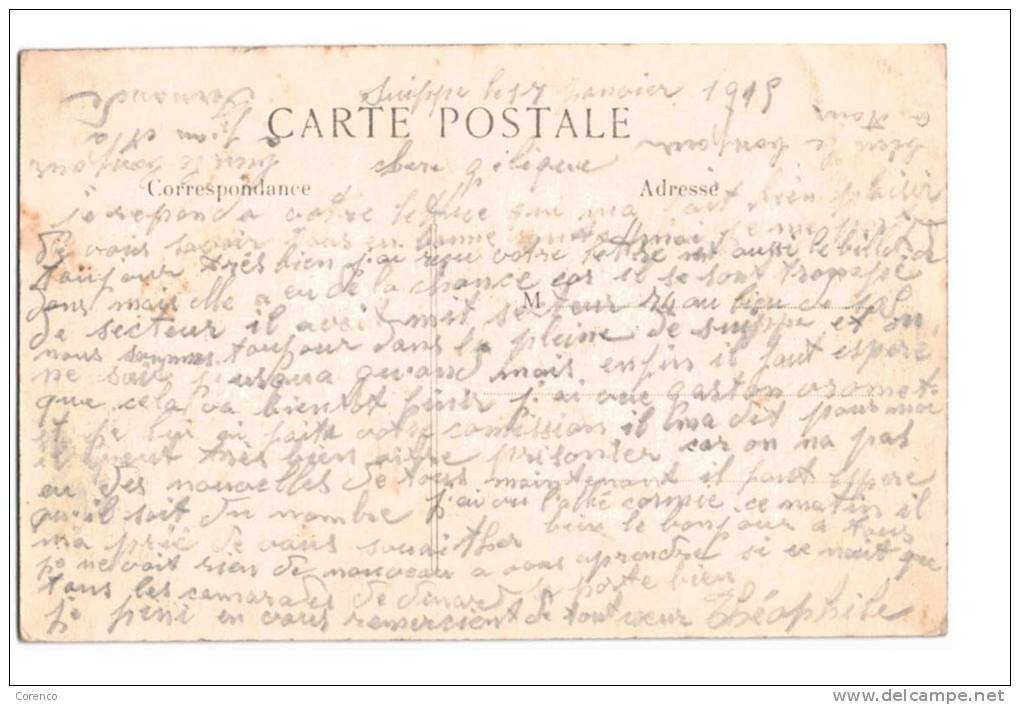 Suippe le 17 janvier 1915
CARTE POSTALE
chere
Correspondance
Adresse
je repond a votre lettre qui ma fait bien plaisir
de vous savoir tous en bonne moi je me
toujour très bien j'ai reçu votre lettre et aussi le billet de
dans mais elle a eu de la chance car il se sont trompé
M
de secteur il avait mit secteur 74 au lieu de
nous sommes toujour dans la pleine de suippe et on
ne sait jusqua quand mais enfin il faut espere
que cela va bientot finir j'ai vue gaston
et je lui ai fait votre comission il ma dit pour moi
il peut très bien aitre prisonier car on na pas
eu des nouvelles de tous maintenant il faut espere
qu'il soit du nombre j'ai vu l'abé ce matin il
ma prié de vous souaither bien le bonjour a tous
je ne voit rien de nouveau a vous aprendre si ce nait que
tous les camarades de dinard se porte bien
je fini en vous remercient de tout cœur Théophile
bien le bonjour
a tous
bien le bonjour
a
Fernande
Corenco
www.delcampe.net